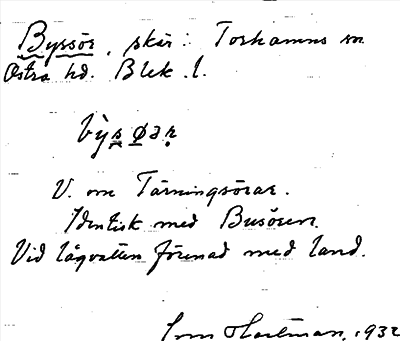 Byssör, skär: Torhamns sn
Östra hd. Blek. l.
V. om Tärningsörar.
Identisk med Busören.
Vid lågvatten förenad med land.
Hartman, 1932